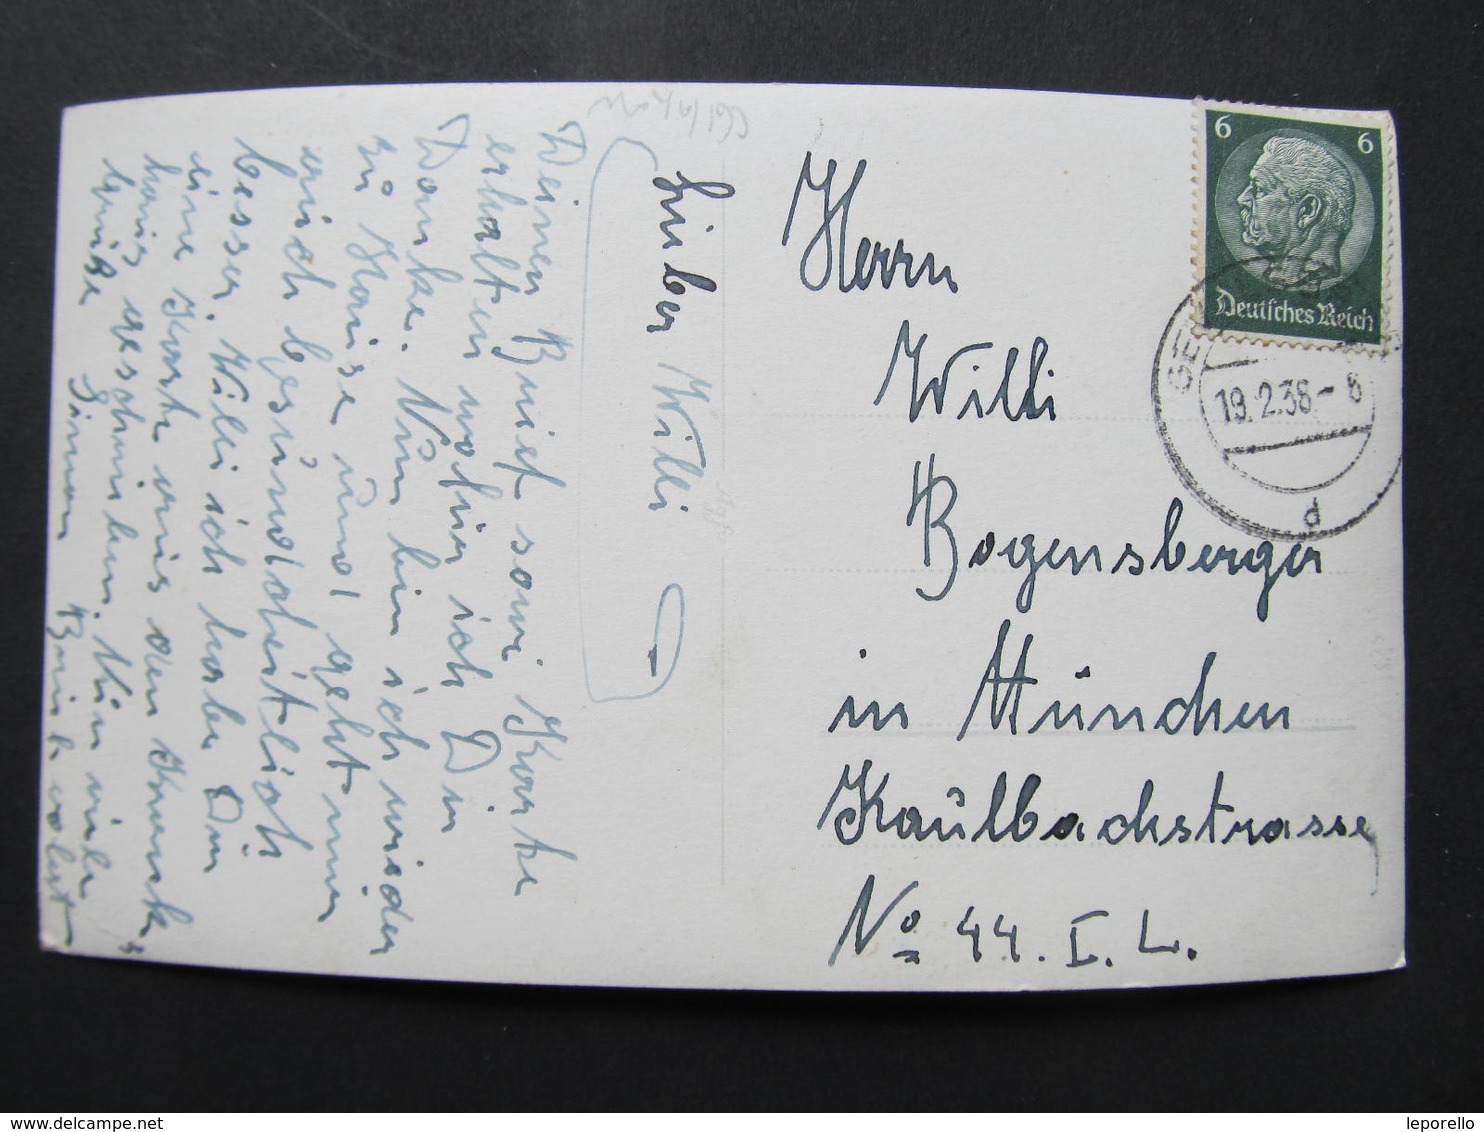 Lieber Willi
Deinen Brief sowi Karte
erhalten wofür ich Dir
Danke. Nun bin ich wieder
zu Hause und geht mir
auch besser
Willi ich habe Dir
eine Karte aus dem Krank
haus geschrieben. Nun viele
Grüße
6 6
Deutsches Reich
19.2.38-8
d
Herrn
Willi
Bogensberger
in München
Kaülbachstrasse
No 44. I. L.
delcampe.net
leporello